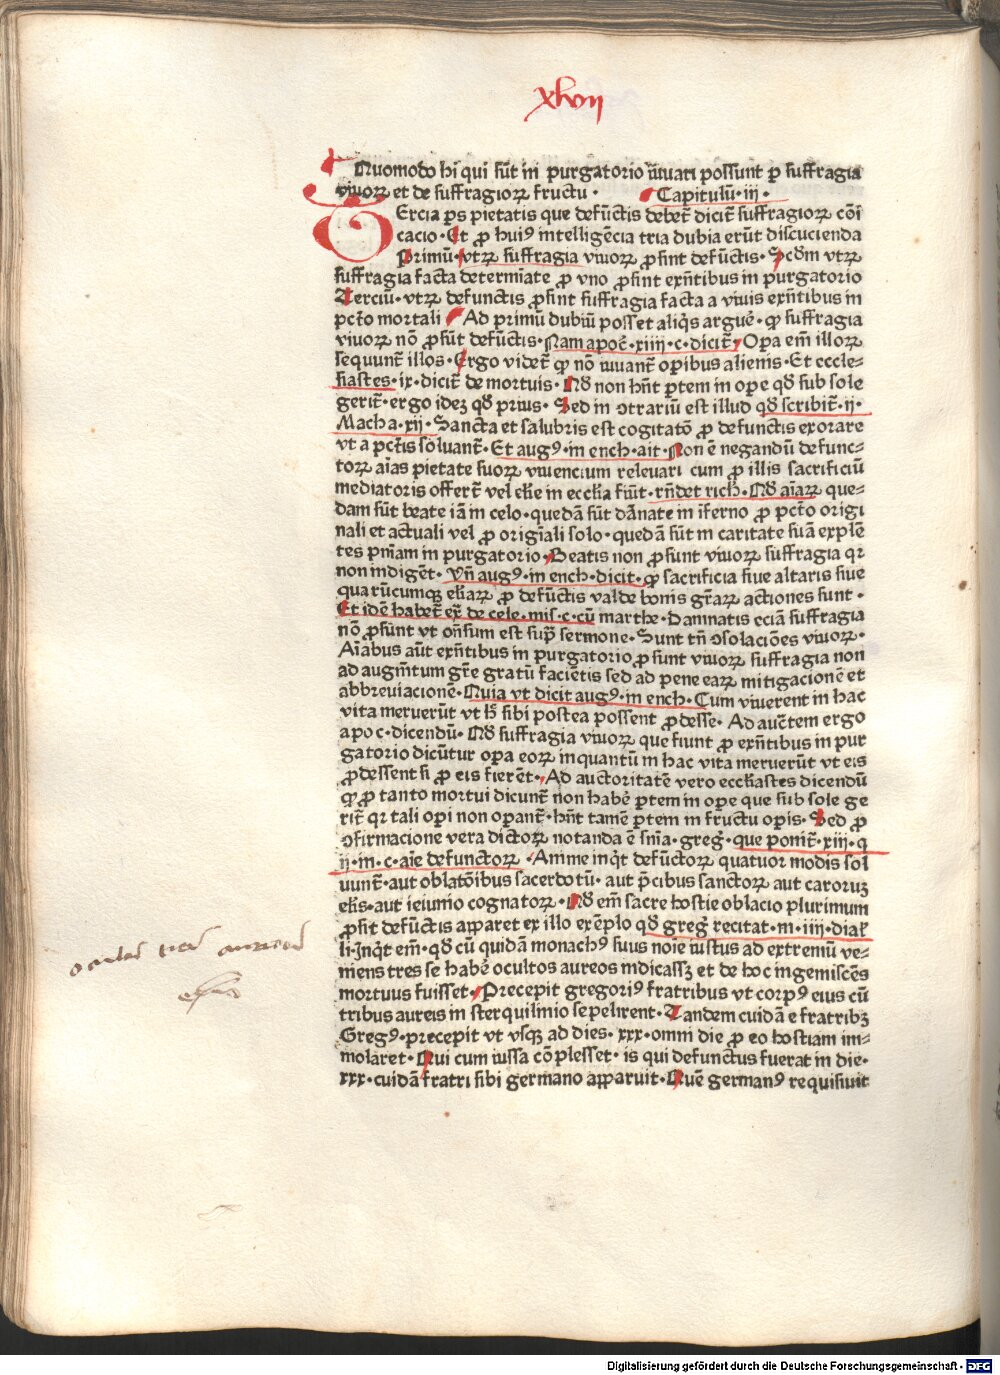 xlvii
Quomodo hi qui sūt in purgatorio iuuari possunt ꝑ suffragia
viuoꝝ et de suffragioꝝ fructu · Capitulū · iii ·
Tercia ꝑs pietatis que defūctis debet̄ dicit̄ suffragioꝝ cōi
cacio · Et ꝓ huiꝰ intelligēcia tria dubia erūt discucienda
Primū · vtꝝ suffragia viuoꝝ ꝓsint defūctis · Scd̄m vtꝝ
suffragia facta determīate ꝓ vno ꝓsint exn̄tibus in purgatorio
Terciū · vtꝝ defunctis ꝓsint suffragia facta a viuis exn̄tibus in
pctō mortali Ad primū dubiū posset aliq̄s arguē · ꝙ suffragia
viuoꝝ nō ꝓsūt defūctis · Nam apoc̄ · xiiii · c · dicit̄ · Opa em̄ illoꝝ
sequunt̄ illos · Ergo videt̄ ꝙ nō iuuant̄ opibus alienis · Et eccle⸗
siastes · ix · dicit̄ de mortuis · Nō non hn̄t ꝑtem in ope qd̄ sub sole
gerit̄ · ergo idez qd̄ prius · Sed in ↄtrariū est illud qd̄ scribit̄ · ii ·
Macha · xii · Sancta et salubris est cogitatō ꝓ defunctis exorare
vt a pctīs soluant̄ · Et augꝰ · in ench · ait · Non ē negandū defunc⸗
toꝝ aīas pietate suoꝝ viuencium releuari cum ꝓ illis sacrificiū
mediatoris offert̄ vel elīe in eccłia fiūt · rn̄det rich · Nō aīaꝝ que⸗
dam sūt beate iā in celo · quedā sūt dānate in īferno ꝓ pctō origi
nali et actuali vel ꝓ origīali solo · quedā sūt in caritate suā explē
tes pn̄iam in purgatorio · Beatis non ꝓsunt viuoꝝ suffragia qr
non indigēt · Vn̄ augꝰ · in ench · dicit · ꝙ sacrificia siue altaris siue
quarūcumqꝫ elīaꝝ ꝓ defūctis valde bonis gr̄aꝝ actiones sunt ·
Et idē habet̄ ex̄ de cele · mis · c · cū marthe · Damnatis eciā suffragia
nō ꝓsūnt vt on̄sum est supͣ sermone · Sunt tn̄ ↄsolaciōes viuoꝝ ·
Aīabus aūt exn̄tibus in purgatorio ꝓsunt viuoꝝ suffragia non
ad augm̄tum gr̄e gratū faciētis sed ad pene eaꝝ mitigacionē et
abbreuiacionē · Quia vt dicit augꝰ · in ench · Cum viuerent in hac
vita meruerūt vt h̄ sibi postea possent ꝓdesse · Ad auc̄tem ergo
apoc · dicendū · Nō suffragia viuoꝝ que fiunt ꝓ exn̄tibus in pur
gatorio dicūtur opa eoꝝ inquantū in hac vita meruerūt vt eis
ꝓdessent si ꝓ eis fierēt · Ad auctoritatē vero eccłiastes dicendū
ꝙ ꝓ tanto mortui dicunt̄ non habē ꝑtem in ope que sub sole ge
rit̄ qr tali opi non opant̄ · hn̄t tamē ꝑtem in fructu opis · Sed ꝓ
ↄfirmacione vera dictoꝝ notanda ē sn̄ia · greḡ · que ponit̄ · xiii · q
ii · in · c · aīe defunctoꝝ · Anime inqͥt defūctoꝝ quatuor modis sol
uunt̄ · aut oblatōibus sacerdotū · aut p̄cibus sanctoꝝ aut caroruꝫ
elīs · aut ieiunio cognatoꝝ · Nō em̄ sacre hostie oblacio plurimum
ꝓsit defūctis apparet ex illo exēplo qd̄ greḡ recitat · in · iiii · dial̄
li · Inqͥt em̄ · qd̄ cū quidā monachꝰ suus noīe iustus ad extremū ve⸗
niens tres se habē ocultos aureos indicassꝫ et de hoc ingemiscēs
mortuus fuisset · Precepit gregoriꝰ fratribus vt corpꝰ eius cū
tribus aureis in sterquilinio sepelirent · Tandem cuidā e fratribꝫ
Gregꝰ · precepit vt vsqꝫ ad dies · xxx · omni die ꝓ eo hostiam im⸗
molaret · Qui cum iussa cōplesset · is qui defunctus fuerat in die ·
xxx · cuidā fratri sibi germano apparuit · Quē germanꝰ requisiuit
Digitalisierung gefördert durch die Deutsche Forschungsgemeinschaft · DFG